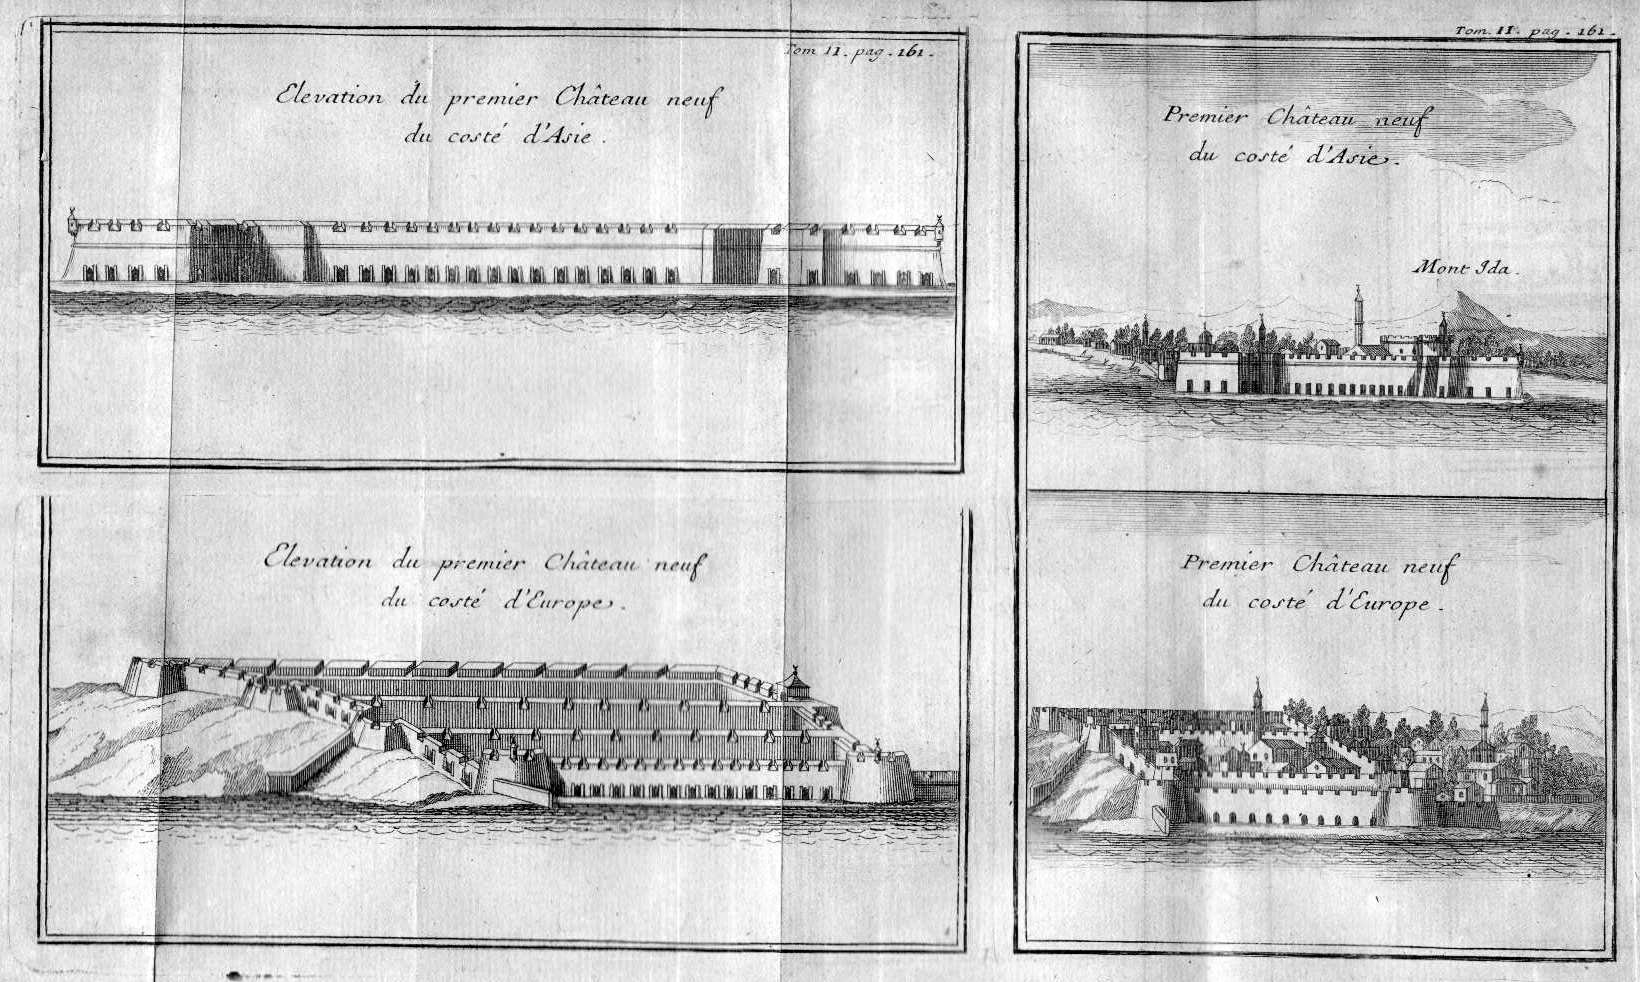 Tom II. pag. 161.
Elevation du premier Château neuf
du costé d'Asie.
Elevation du premier Château neuf
du costé d'Europe.
Tom. II. pag. 161.
Premier Château neuf
du costé d'Asie.
Mont Ida.
Premier Château neuf
du costé d'Europe.